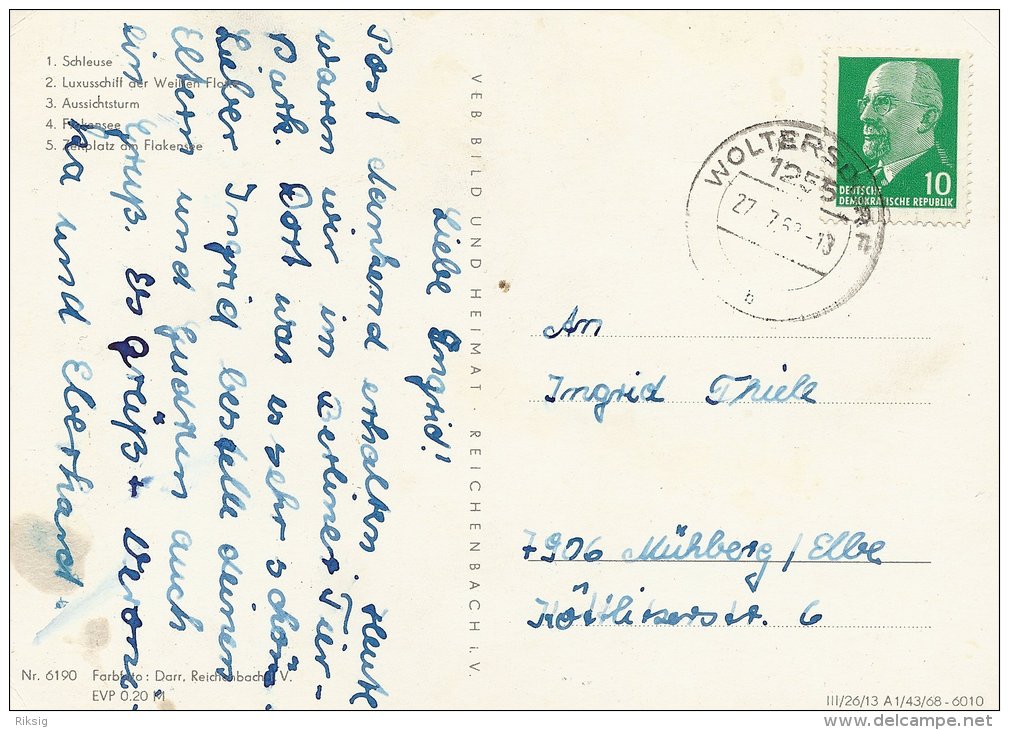 1. Schleuse
2. Luxusschiff der Weißen Flotte
3. Aussichtsturm
4. Flakensee
5. Zeltplatz am Flakensee
Liebe Ingrid!
Post dankend erhalten. Heute
waren wir im Berliner Tier-
park. Dort war es sehr schön.
Lieber Ingrid bestelle deinen
Eltern und Gudrun auch
ein Gruß. Es grüßt Veroni-
ka und Eberhard.
VEB BILD UND HEIMAT · REICHENBACH i. V.
DEUTSCHE
DEMOKRATISCHE REPUBLIK
10
WOLTERSDORF
1255
27. 7.69-13
b
An
Ingrid Thiele
7906 Mühlberg/Elbe
Köttlitzerstr. 6
Nr. 6190 Farbfoto: Darr, Reichenbach i. V.
EVP 0.20 M
III/26/13 A 1/43/68 - 6010
Riksig
www.delcampe.net